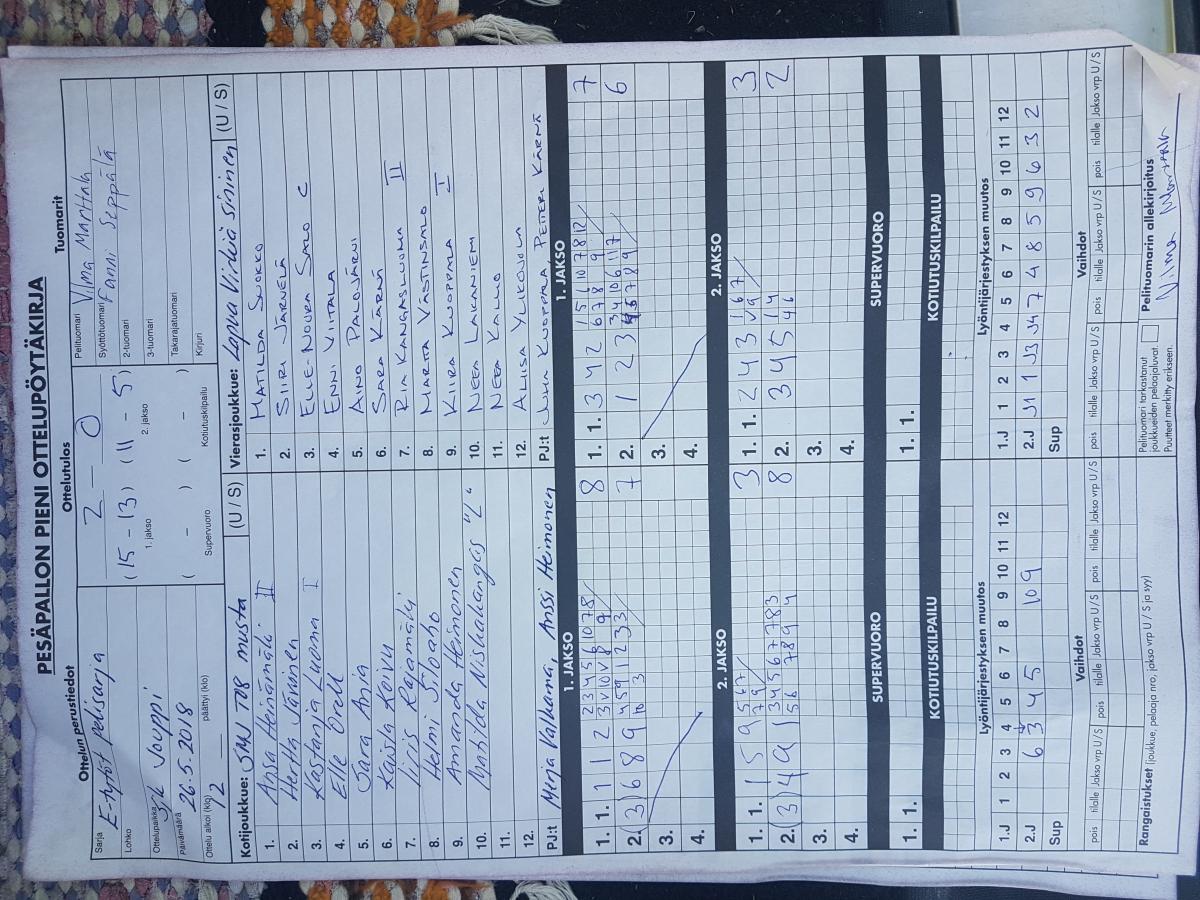 PESÄPALLON PIENI OTTELUPÖYTÄKIRJA
Ottelun perustiedot
Ottelutulos
Tuomarit
Sarja
E-tytöt pelisarja
Lohko
Ottelupaikka
Jouppi
Päivämäärä
26.5.2018
Ottelu alkoi (klo)
12
päättyi (klo)
2 — 0
(15 - 13) (11 - 5)
1. jakso
2. jakso
( - ) ( - )
Supervuoro
Kotiutuskilpailu
Pelituomari
Vilma Marttala
Syöttötuomari
Fanni Seppälä
2-tuomari
3-tuomari
Takarajatuomari
Kirjuri
Kotijoukkue: SMJ T08 musta (U / S)
1. Ansa Heinämäki II
2. Hertta Järvinen
3. Kastanja Luoma I
4. Elle Orell
5. Sara Ania
6. Kaisla Koivu
7. Iiris Rajamäki
8. Helmi Siloaho
9. Amanda Heimonen
10. Matilda Niskakangas "L"
11.
12.
PJ:t Merja Valkama, Anssi Heimonen
Vierasjoukkue: Lapua Virkiä sininen (U / S)
1. MATILDA SUOKKO
2. SIIRI JÄRNELÄ
3. ELLE-NOORA SALO C
4. ENNI VITALA
5. AINO PALOJÄRVI
6. SARA KÄRNÄ
7. RIA KANGASLUOMA II
8. MARITA VÄSTINSALO
9. KIIRA KUOPPALA I
10. NEEA LAKANIEMI
11. NEEA KALLIO
12. ALIISA YLIKOJOLA
PJ:t JUHA KUOPPALA, PETER KÄRNÄ
1. JAKSO
1. 1. 1 1 2
8
2. (3) 6 8 9
7
3.
4.
1. JAKSO
1. 1. 3 4 2
7
2. 1 2 3
6
3.
4.
2. JAKSO
1. 1. 1 5 9
3
2. (3) 4 9
8
3.
4.
2. JAKSO
1. 1. 2 4 3
3
2. 3 4 5
2
3.
4.
SUPERVUORO
1. 1.
SUPERVUORO
1. 1.
KOTIUTUSKILPAILU
KOTIUTUSKILPAILU
Lyöntijärjestyksen muutos
1.J 1 2 3 4 5 6 7 8 9 10 11 12
2.J 6 3 4 5 10 9
Sup
Lyöntijärjestyksen muutos
1.J 1 2 3 4 5 6 7 8 9 10 11 12
2.J 7 4 8 5 9 6 3 2
Sup
Vaihdot
pois tilalle Jakso vrp U / S pois tilalle Jakso vrp U / S pois tilalle Jakso vrp U / S
Vaihdot
pois tilalle Jakso vrp U / S pois tilalle Jakso vrp U / S pois tilalle Jakso vrp U / S
Rangaistukset (joukkue, pelaaja nro, jakso vrp U / S ja syy)
Pelituomari tarkastanut
joukkueiden pelaajaluvat.
Puutteet merkitty erikseen.
Pelituomarin allekirjoitus
Vilma Marttala